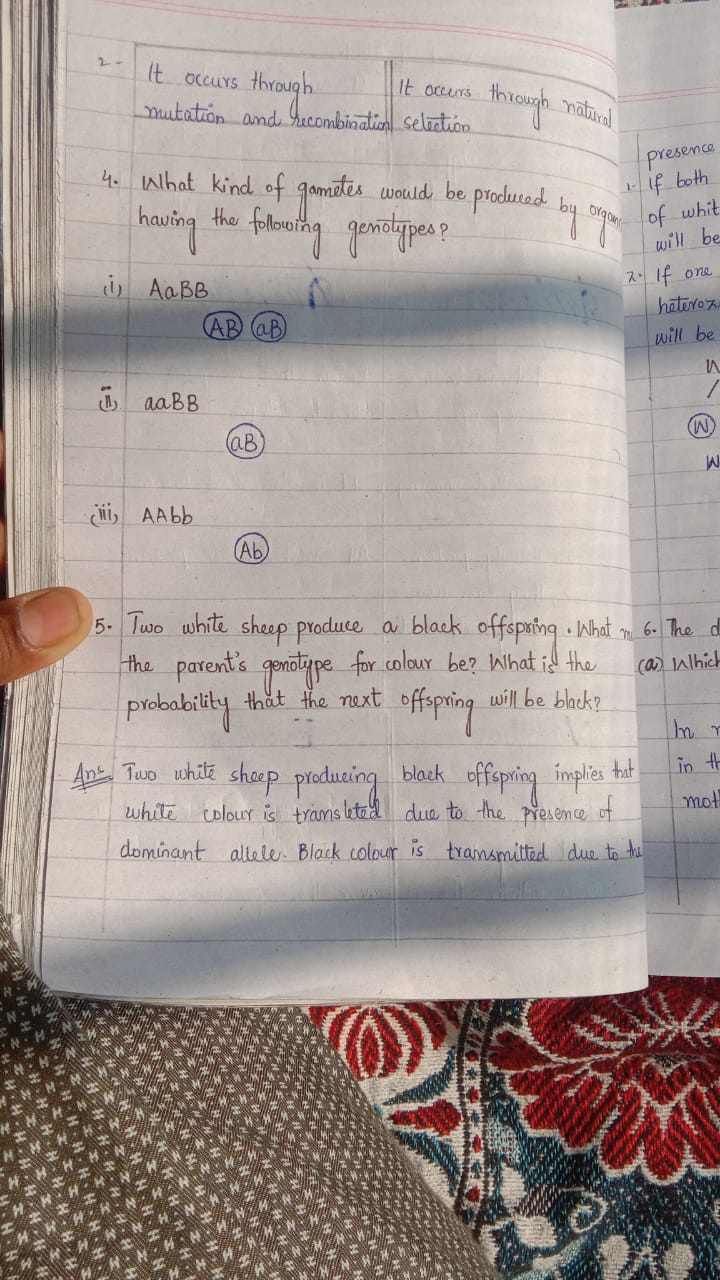 2-
It occurs through
mutation and recombination
It occurs through natural
selection
4. What kind of gametes would be produced by
having the following genotypes?
(i) AaBB
AB aB
(ii) aaBB
aB
(iii) AAbb
Ab
5. Two white sheep produce a black offspring. What
the parent's genotype for colour be? What is the
probability that the next offspring will be black?
Ans Two white sheep producing black offspring implies that
white colour is due to the presence of
dominant allele. Black colour is transmitted due to the
presence
1. If both
of whit
will be
2. If one
heteroz
will be
W
W
6. The d
(a) Which
In
in th
moth